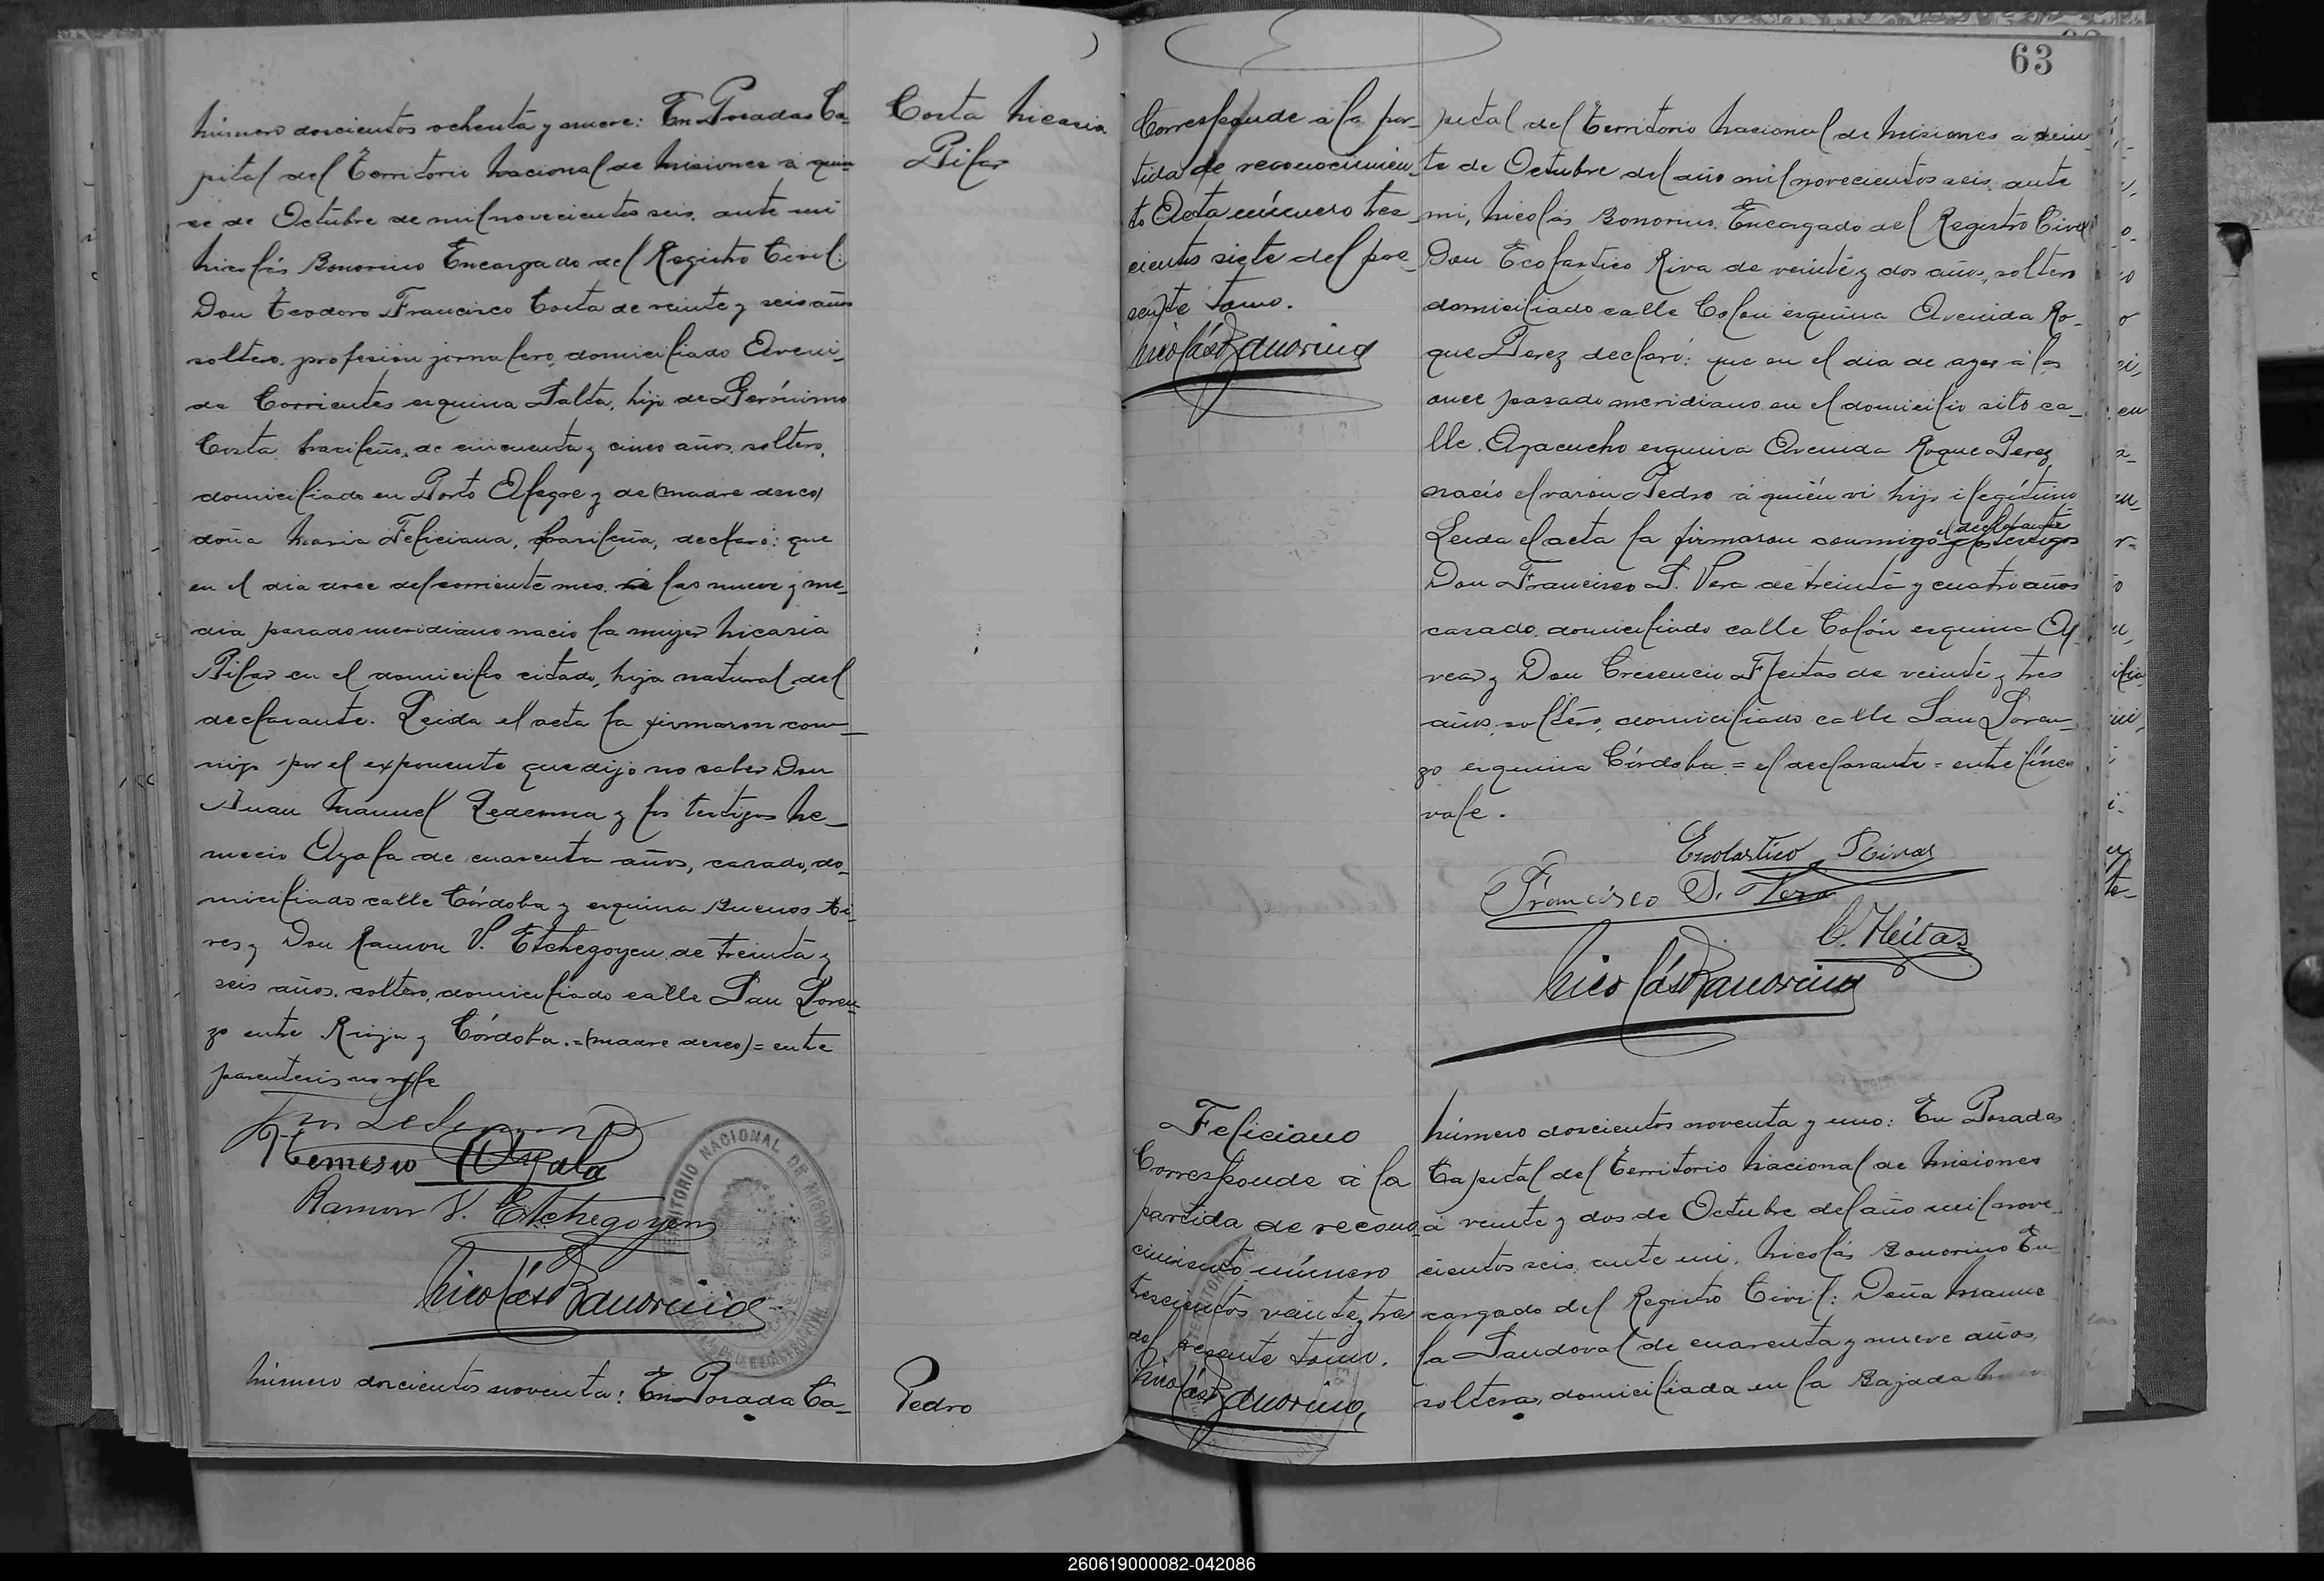 número doscientos ochenta y nueve: En Posadas Ca-
pital del Territorio Nacional de Misiones á quin-
ce de Octubre de mil novecientos seis, ante mi
Nicolás Bonorino Encargado del Registro Civil:
Don Teodoro Francisco Costa de veinte y seis años
soltero, profesión jornalero, domiciliado Aveni-
da Corrientes esquina Salta, hijo de Gerónimo
Costa brasileño, de cincuenta y cinco años, soltero,
domiciliado en Porto Alegre y de (madre desco)
doña Maria Feliciana, brasileña, declaró: que
en el dia once del corriente mes, á las nueve y me-
dia pasado meridiano nació la mujer Nicasia
Pilar en el domicilio citado, hija natural del
declarante. Leida el acta la firmaron con-
migo por el exponente que dijo no saber Don
Juan Manuel Ledesma y los testigos Ne-
mecio Ayala de cuarenta años, casado, do-
miciliado calle Córdoba y esquina Buenos Ai-
res y Don Ramon V. Etchegoyen de treinta y
seis años, soltero, domiciliado calle San Loren-
zo entre Rioja y Córdoba.=(madre desco)= entre
parentesis no vale
Nemesio Ayala
Ramon V. Etchegoyen
Nicolás Bonorino
TERRITORIO NACIONAL DE MISIONES
número doscientos noventa: En Posada Ca-
Costa Nicasia
Pilar
Pedro
63
Corresponde á la par-
tida de reconocimien-
to Acta número tres-
cientos siete del pre-
sente tomo.
Nicolás Bonorino
pital del Territorio Nacional de Misiones á vein-
te de Octubre del año mil novecientos seis, ante
mi, Nicolás Bonorino, Encargado del Registro Civil
Don Ecolastico Riva de veinte y dos años, soltero
domiciliado calle Colon esquina Avenida Ro-
que Perez declaró: que en el dia de ayer á las
once pasado meridiano en el domicilio sito ca-
lle Ayacucho esquina Avenida Roque Perez
nació el varón Pedro á quién vi hijo ilegítimo
Leida el acta la firmaron conmigo el declarante y los testigos
Don Francisco S. Vera de treinta y cuatro años
casado, domiciliado calle Colón esquina Al-
vear y Don Cresencio Fleitas de veinte y tres
años, soltero, domiciliado calle San Loren-
zo esquina Córdoba = el declarante = entre línea
vale.
Escolastico Rivas
Francisco S. Vera
C. Fleitas
Nicolás Bonorino
Feliciano
Corresponde á la
partida de recono-
cimiento número
trescientos veinte y tres
del presente tomo.
Nicolás Bonorino
número doscientos noventa y uno: En Posadas
Capital del Territorio Nacional de Misiones
á veinte y dos de Octubre del año mil nove-
cientos seis, ante mi, Nicolás Bonorino En-
cargado del Registro Civil: Doña Manue-
la Sandoval de cuarenta y nueve años,
soltera, domiciliada en la Bajada
260619000082-042086